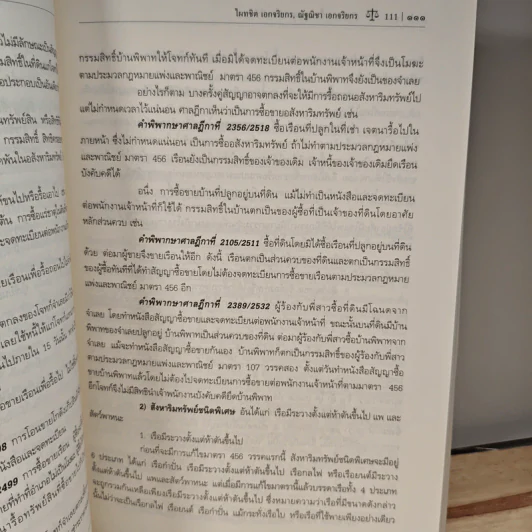 ไผทชิต เอกจริยกร, ณัฐณิชา เอกจริยกร 111 | ๑๑๑
กรรมสิทธิ์บ้านพิพาทให้โจทก์ทันที เมื่อมิได้จดทะเบียนต่อพนักงานเจ้าหน้าที่จึงเป็นโมฆะ
ตามประมวลกฎหมายแพ่งและพาณิชย์ มาตรา 456 กรรมสิทธิ์ในบ้านพิพาทจึงยังเป็นของจำเลย
อย่างไรก็ตาม บางครั้งคู่สัญญาอาจตกลงที่จะให้มีการรื้อถอนอสังหาริมทรัพย์ไป
แต่ไม่กำหนดเวลาไว้แน่นอน ศาลฎีกาเห็นว่าเป็นการซื้อขายอสังหาริมทรัพย์ เช่น
คำพิพากษาศาลฎีกาที่ 2356/2518 ซื้อเรือนที่ปลูกในที่เช่า เจตนารื้อไปใน
ภายหน้า ซึ่งไม่กำหนดแน่นอน เป็นการซื้ออสังหาริมทรัพย์ ถ้าไม่ทำตามประมวลกฎหมายแพ่ง
และพาณิชย์ มาตรา 456 เรือนยังเป็นกรรมสิทธิ์ของเจ้าของเดิม เจ้าหนี้ของเจ้าของเดิมยึดเรือน
บังคับคดีได้
อนึ่ง การซื้อขายบ้านที่ปลูกอยู่บนที่ดิน แม้ไม่ทำเป็นหนังสือและจดทะเบียน
ต่อพนักงานเจ้าหน้าที่ก็ใช้ได้ กรรมสิทธิ์ในบ้านตกเป็นของผู้ซื้อที่เป็นเจ้าของที่ดินโดยอาศัย
หลักส่วนควบ เช่น
คำพิพากษาศาลฎีกาที่ 2105/2511 ซื้อที่ดินโดยมิได้ซื้อเรือนที่ปลูกอยู่บนที่ดิน
ด้วย ต่อมาผู้ขายจึงขายเรือนให้อีก ดังนี้ เรือนตกเป็นส่วนควบของที่ดินและตกเป็นกรรมสิทธิ์
ของผู้ซื้อทันทีที่ได้ทำสัญญาซื้อขายโดยไม่ต้องจดทะเบียนการซื้อขายเรือนตามประมวลกฎหมาย
แพ่งและพาณิชย์ มาตรา 456 อีก
คำพิพากษาศาลฎีกาที่ 2389/2532 ผู้ร้องกับพี่สาวซื้อที่ดินมีโฉนดจาก
จำเลย โดยทำหนังสือสัญญาซื้อขายและจดทะเบียนต่อพนักงานเจ้าหน้าที่ ขณะนั้นบนที่ดินมีบ้าน
พิพาทของจำเลยปลูกอยู่ บ้านพิพาทเป็นส่วนควบของที่ดิน ต่อมาผู้ร้องกับพี่สาวซื้อบ้านพิพาทจาก
จำเลย แม้จะทำหนังสือสัญญาซื้อขายกันเอง บ้านพิพาทก็ตกเป็นกรรมสิทธิ์ของผู้ร้องกับพี่สาว
ตามประมวลกฎหมายแพ่งและพาณิชย์ มาตรา 107 วรรคสอง ตั้งแต่วันทำหนังสือสัญญาซื้อ
ขายบ้านพิพาทแล้วโดยไม่ต้องไปจดทะเบียนการซื้อขายต่อพนักงานเจ้าหน้าที่ตามมาตรา 456
อีกโจทก์จึงไม่มีสิทธินำเจ้าพนักงานบังคับคดียึดบ้านพิพาท
2) สังหาริมทรัพย์ชนิดพิเศษ อันได้แก่ เรือมีระวางตั้งแต่ห้าตันขึ้นไป แพ และ
สัตว์พาหนะ
1. เรือมีระวางตั้งแต่ห้าตันขึ้นไป
ก่อนที่จะมีการแก้ไขมาตรา 456 วรรคแรกนี้ สังหาริมทรัพย์ชนิดพิเศษจะมีอยู่
6 ประเภท ได้แก่ เรือกำปั่น เรือมีระวางตั้งแต่ห้าตันขึ้นไป เรือกลไฟ หรือเรือยนต์มีระวาง
ตั้งแต่ห้าตันขึ้นไป แพและสัตว์พาหนะ แต่เมื่อมีการแก้ไขมาตรานี้แล้วบรรดาเรือทั้ง 4 ประเภท
จะถูกรวมกันเหลือเพียงเรือมีระวางตั้งแต่ห้าตันขึ้นไป ซึ่งหมายความว่าเรือที่มีขนาดดังกล่าว
นั้นไม่ว่าจะเป็นเรือกลไฟ เรือยนต์ เรือกำปั่น แม้กระทั่งเรือใบ หรือเรือที่ใช้พายเพียงอย่างเดียว